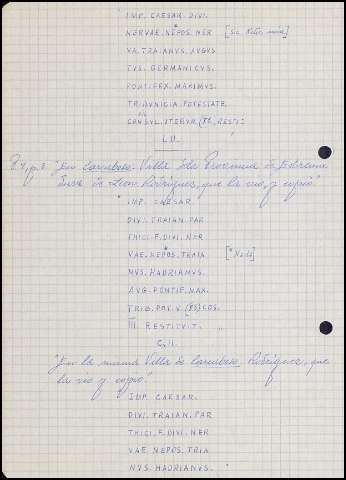 IMP. CAESAR. DIVI.
NERVAE. NEPOS. NER
VA. TRAIANVS. AVGVS
TVS. GERMANICVS.
PONTIFEX. MAXIMVS
TRIBVNICIA. POTESTATE.
CONSVL. ITERVM. RESTI:
LII.
"En Carcaboso. Villa de la Provincia de Estrema
dura de Leon. Rodriguez, que la vio, y copió"
IMP. CAESAR.
DIVI. TRAIAN. PAR
THICI. F. DIVI. NER
VAE. NEPOS. TRAIA
NVS. HADRIANVS.
AVG. PONTIF. MAX.
TRIB. POT. V. COS.
III. RESTITVIT.
C. II.
"En la misma Villa de Carcaboso. Rodriguez, que
la vio y copió"
IMP. CAESAR.
DIVI. TRAIAN. PAR
THICI. F. DIVI. NER
VAE. NEPOS. TRIA
NVS. HADRIANVS.